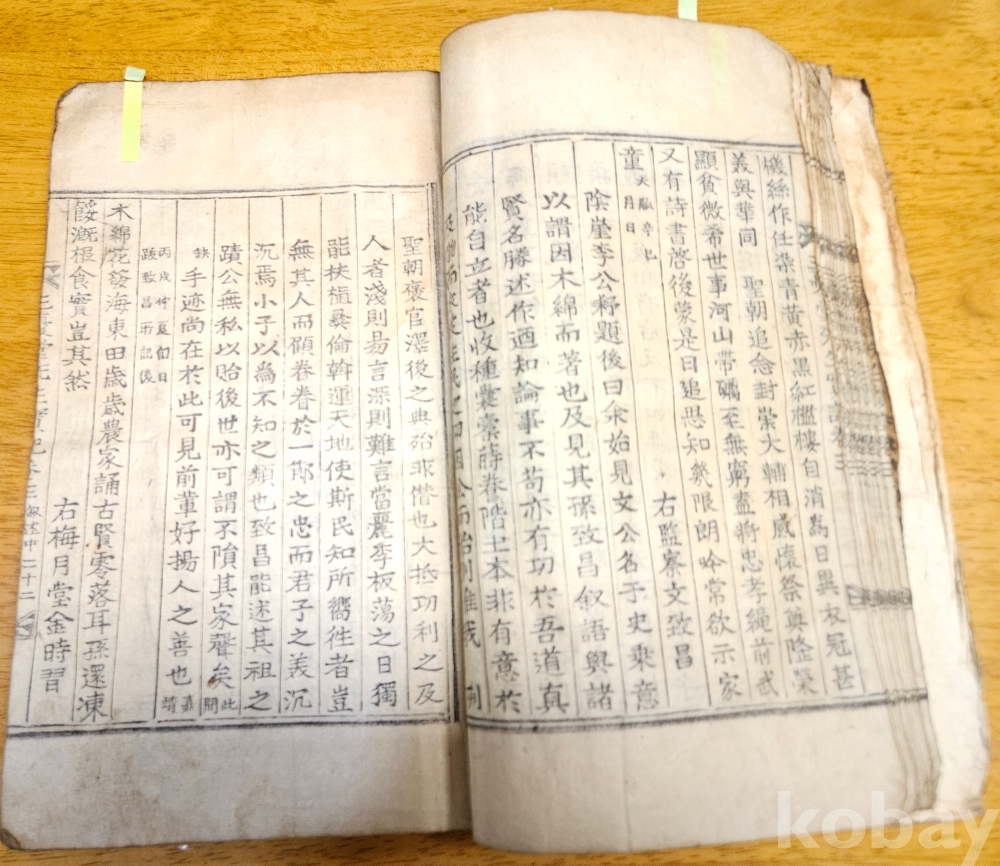 機絲作仕染青黃赤黑紅襤褸自消高日異衣冠甚
義與華同　聖朝追念封崇大輔相感懷祭奠隆窠
顯貧微希世事河山帶礪至無窮盡將忠孝繩前武
又有詩書啓後蒙是日追思知幾限朗吟常欲示家
童
月日
右監察文致昌
陰崖李公耔題後曰余始見文公名于史乘意
以謂因木綿而著也及見其孫致昌叙語與諸
賢名勝述作酒知論事不苟亦有功於吾道真
能自立者也收種囊橐蒔卷階土本非有意於
聖朝褒官澤後之典殆非僭也大抵功利之及
人者淺則易言深則難言當麗季板蕩之日獨
能扶植彝倫斡運天地使斯民知所嚮往者豈
無其人而顧眷眷於一鄖之忠而君子之義沉
沉焉小子以爲不知之類也致昌能述其祖之
蹟公無私以貽後世亦可謂不隕其家聲矣此間
缺手迹尚在於此可見前輩好揚人之善也嘉靖
丙戌仲夏旬日
跋致昌所記後
木綿花發海東田歲歲農家誦古賢零落耳孫還凍
餒漑根食實豈其然
右梅月堂金時習